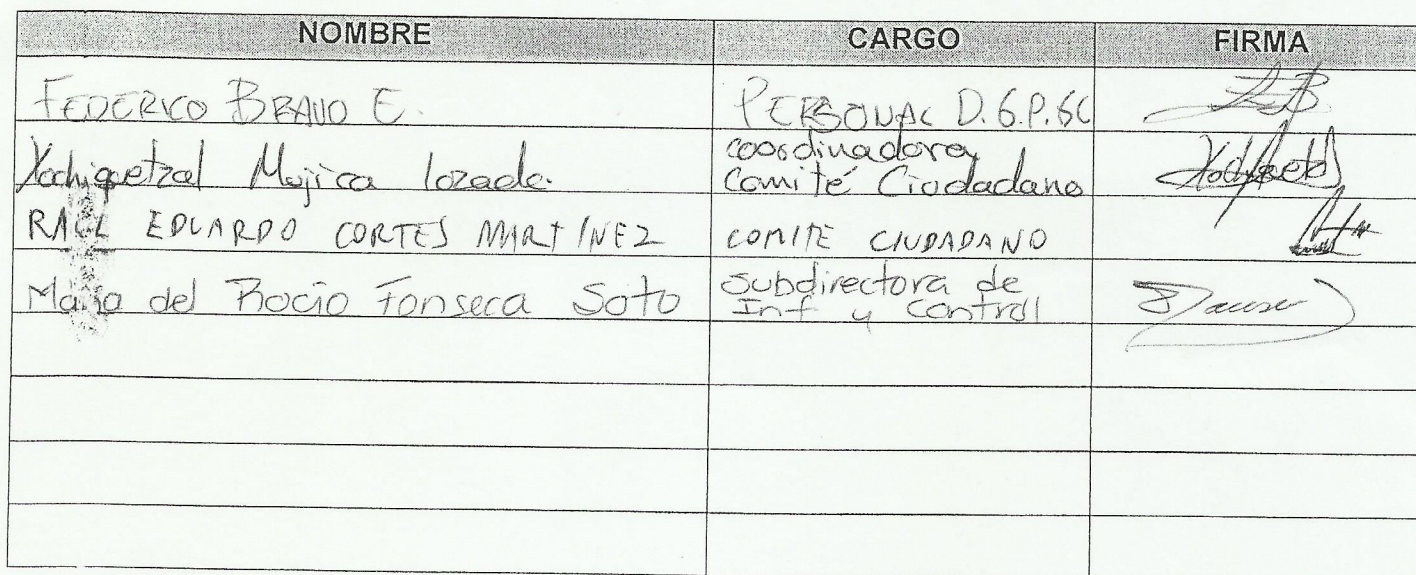 NOMBRE CARGO FIRMA
FEDERICO BRAVO E. PERSONAL D.G.P.SC
Xochiquetzal Mujica lozada. coordinadora
Comité Ciudadano
RAUL EDUARDO CORTES MARTINEZ COMITE CIUDADANO
Maria del Rocio Fonseca Soto Subdirectora de
Inf y Control